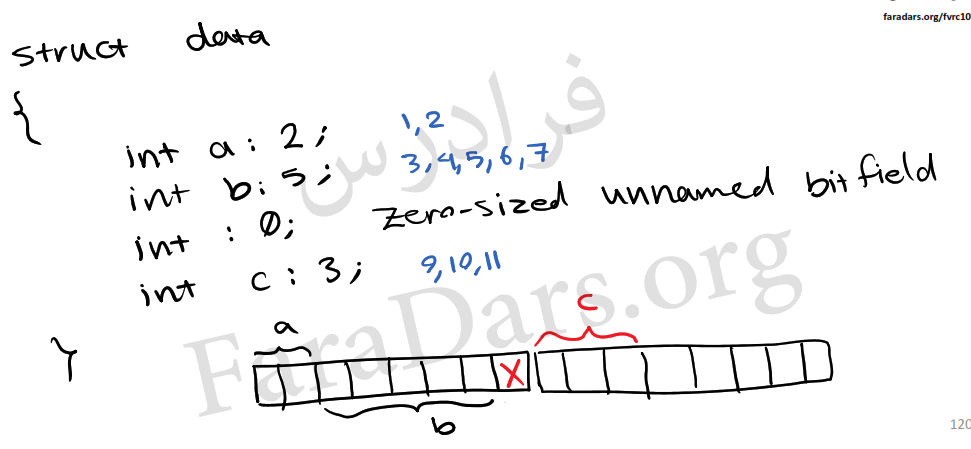 faradars.org/fvrc10
struct data
{
int a : 2 ; 1,2
int b : 5 ; 3,4,5,6,7
int : 0; zero-sized unnamed bit field
int c : 3 ; 9,10,11
}
فرادرس
FaraDars.org
c
a
X
b
120